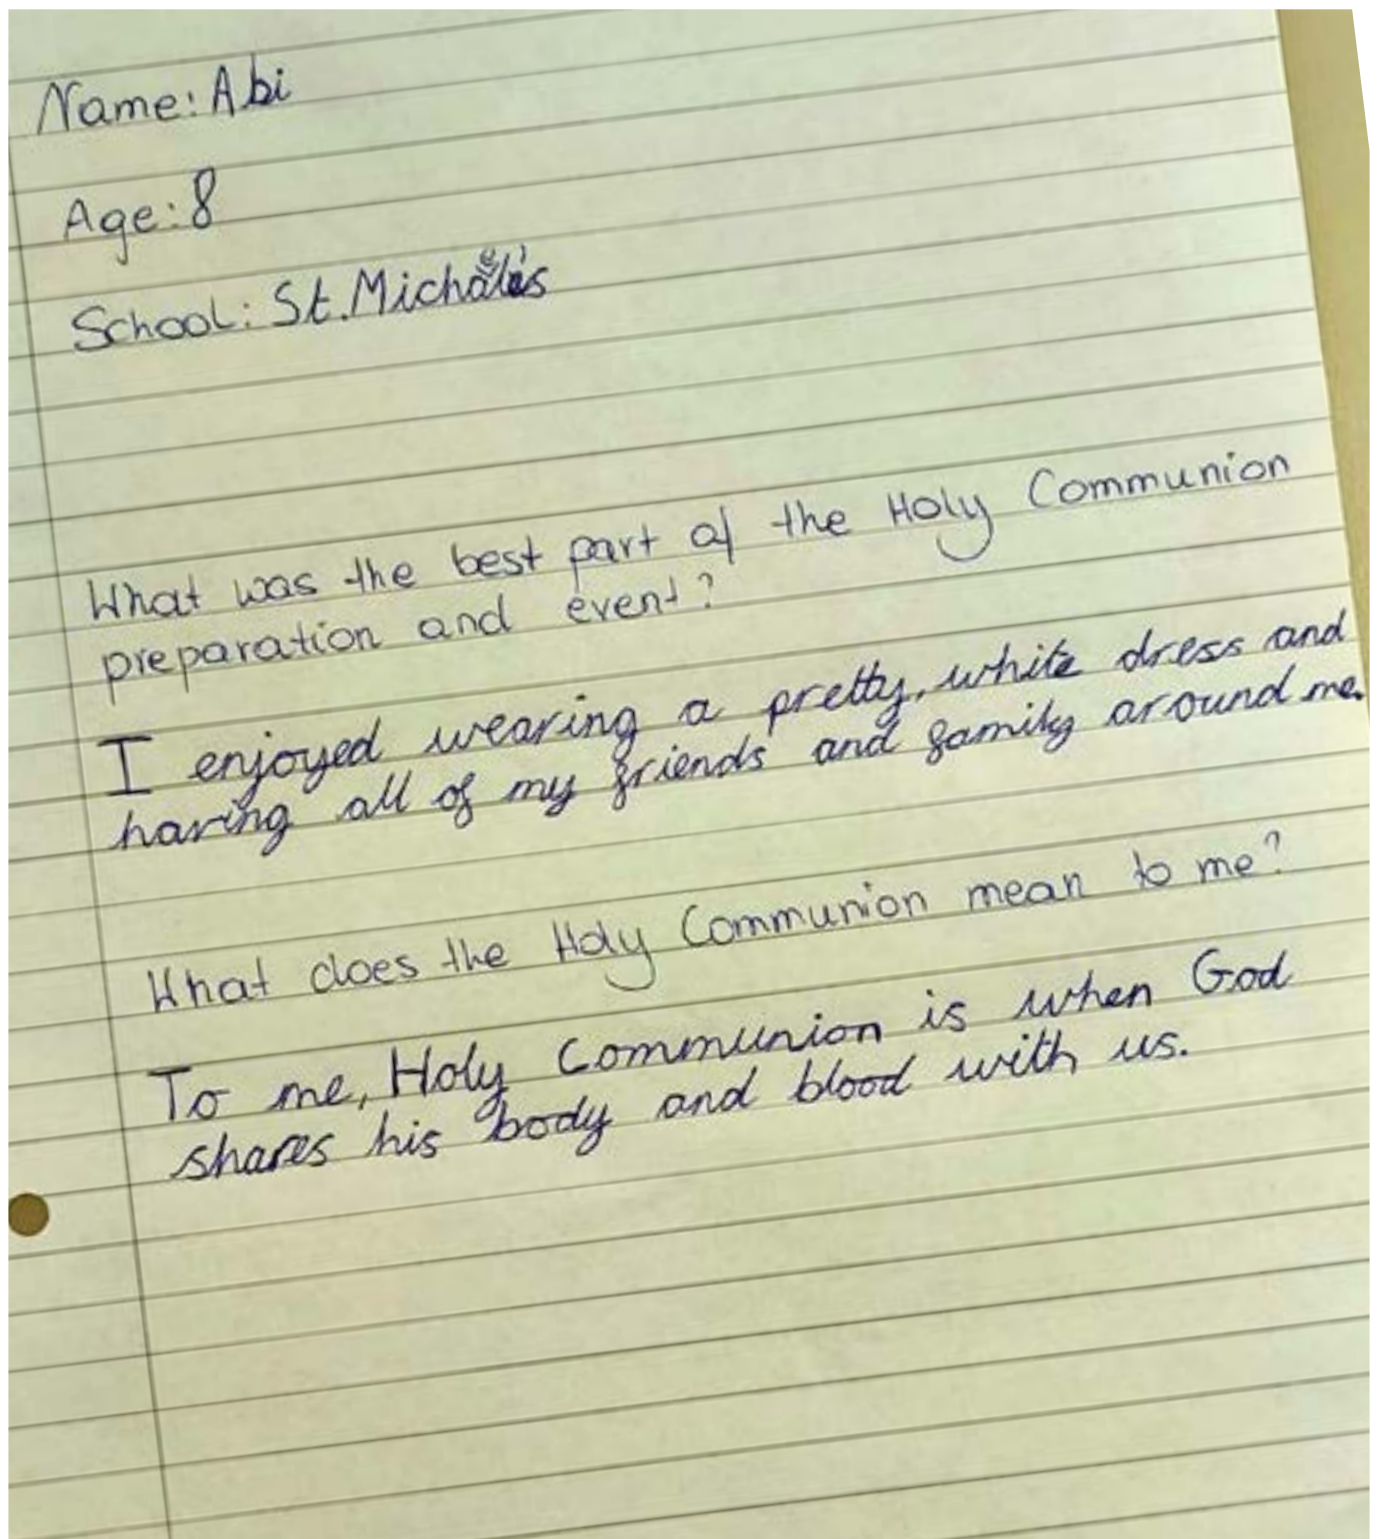 Name: Abi
Age: 8
School: St. Michael's
What was the best part of the Holy Communion
preparation and event?
I enjoyed wearing a pretty, white dress and
having all of my friends and family around me.
What does the Holy Communion mean to me?
To me, Holy Communion is when God
shares his body and blood with us.